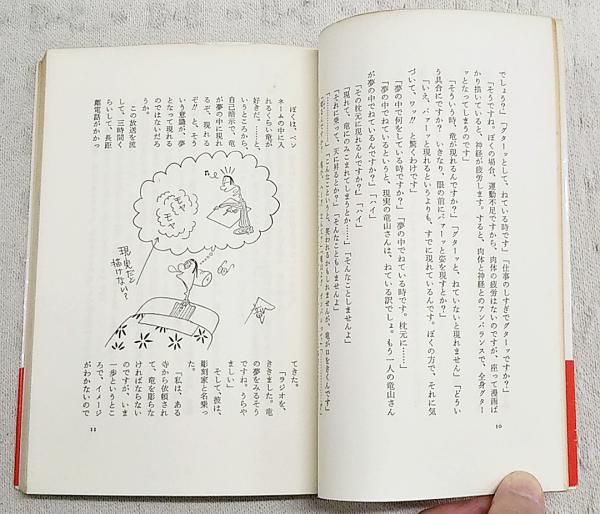 でしょう？」「グターッとして、ねている時です」「仕事のしすぎでグターッですか？」
「そうですね。ぼくの場合、運動不足ですから、肉体の疲労はないのですが、座って漫画ば
かり描いていると、神経が疲労します。すると、肉体と神経とのアンバランスで、全身グター
ッとなってしまうのです」
「そういう時、竜が現れるんですか？」「グターッと、ねていないと現れません」「どうい
う具合にですか？　いきなり、眼の前にパァーッと姿を現すとか？」
「いえ、パァーッと現れるというよりも、すでに現れているんです。ぼくの方で、それに気
づいて、ワッ!!　と驚くわけです」
「夢の中で何をしている時ですか？」「夢の中でねている時です。枕元に……」
「夢の中でねているというと、現実の竜山さんは、ねている訳でしょ。もう一人の竜山さん
が夢の中でねているんですか？」「ハイ」
「その枕元に現れるんですか？」「ハイ」
「現れて、竜にのみこまれてしまうとか……」「そんなことしませんよ」
「それに乗って、天に昇るとか？」「そんなこともしませんよ」
10
ぼくは、ペン
ネームの中に入
れるくらい竜が
好きだ。……と、
いうところから、
自己暗示で、竜
が夢の中に現れ
るぞ、現れる
ぞ、と、そう
いう意識が、夢
となって現れる
のではないだろ
うか。
この放送を流
して、三時間く
らいして、長距
離電話がかかっ
モヤ
モヤ
現実だと
描けない？
てきた。
「ラジオを、
ききました。竜
の夢をみるそう
ですね。うらや
ましい」
そして、彼は、
彫刻家と名乗っ
た。
「私は、ある
寺から依頼され
て、竜を彫らな
ければならない
のですが、いま
一歩というとこ
ろで、イメージ
がわかないので
11